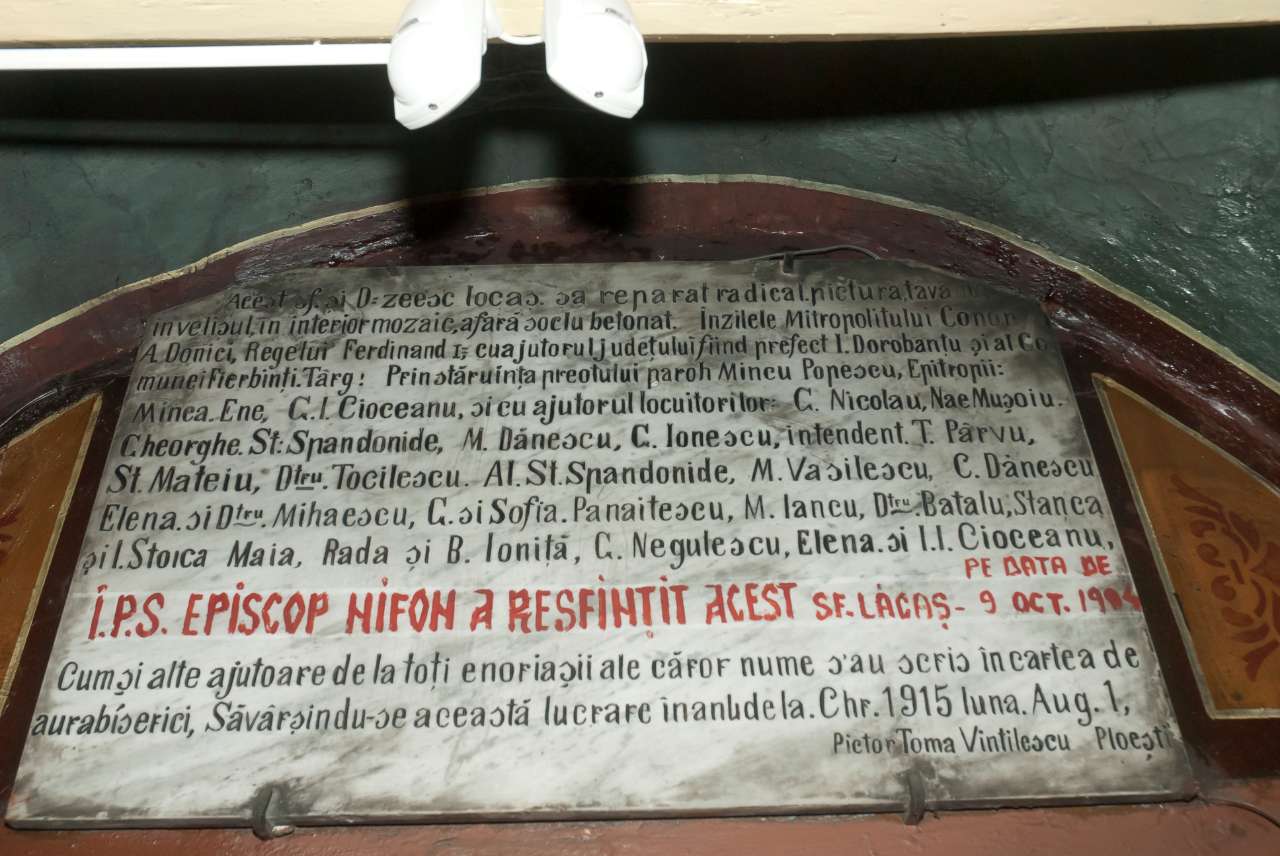 Acest sf. și D=zeesc locaș. sa reparat radical. pictura, tava
invelișul, in interior mozaic, afară soclu betonat. Inzilele Mitropolitului Conon
A. Donici, Regelui Ferdinand I; cu ajutorul județului fiind prefect I. Dorobantu și al Co
munei Fierbinți. Târg: Prin stăruința preotului paroh Mincu Popescu, Epitropii:
Minea. Ene, G. I. Cioceanu, si cu ajutorul locuitorilor: G. Nicolau, Nae Mușoiu.
Gheorghe. St: Spandonide, M. Dănescu, C. Ionescu, intendent. T. Pârvu,
St. Mateiu, Dtru. Tocilescu. Al. St. Spandonide, M. Vasilescu, C. Dănescu
Elena. si Dtru. Mihaescu, G. si Sofia. Panaitescu, M. Iancu, Dtru. Batalu, Stanca
și I. Stoica Maia, Rada și B. Ioniță, G. Negulescu, Elena. si I. I. Cioceanu,
PE DATA DE
Î.P.S. EPISCOP NIFON A RESFINȚIT ACEST SF. LĂCAȘ - 9 OCT.
Cum și alte ajutoare de la toți enoriașii ale căror nume s'au scris în cartea de
aur a bisericii, Săvârșindu-se această lucrare în anul de la. Chr. 1915 luna. Aug. 1,
Pictor Toma Vintilescu Ploești